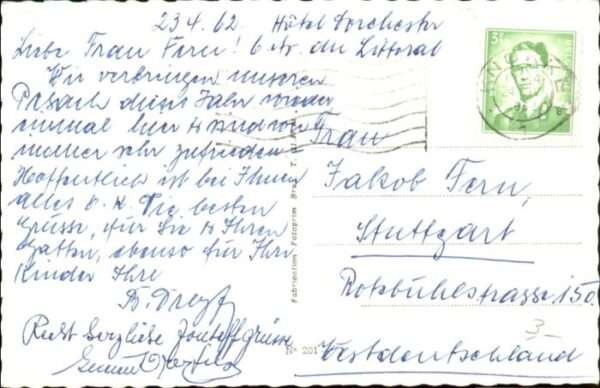 23 4. 62 Hôtel Dorchester
Liebe Frau Fern! 6 du Littoral
Wir verbringen unseren
Pesach dieses Jahr wieder
einmal hier & sind wie
immer sehr zufrieden
Hoffentlich ist bei Ihnen
alles o. K. Die besten
Grüsse, für Sie & Ihren
Gatten, ebenso für Ihre
Kinder Ihre
Recht herzliche Grüsse
Frau
Jakob Fern,
Stuttgart
Rotebühlstrasse 150.
Westdeutschland
3-
N° 201
3F